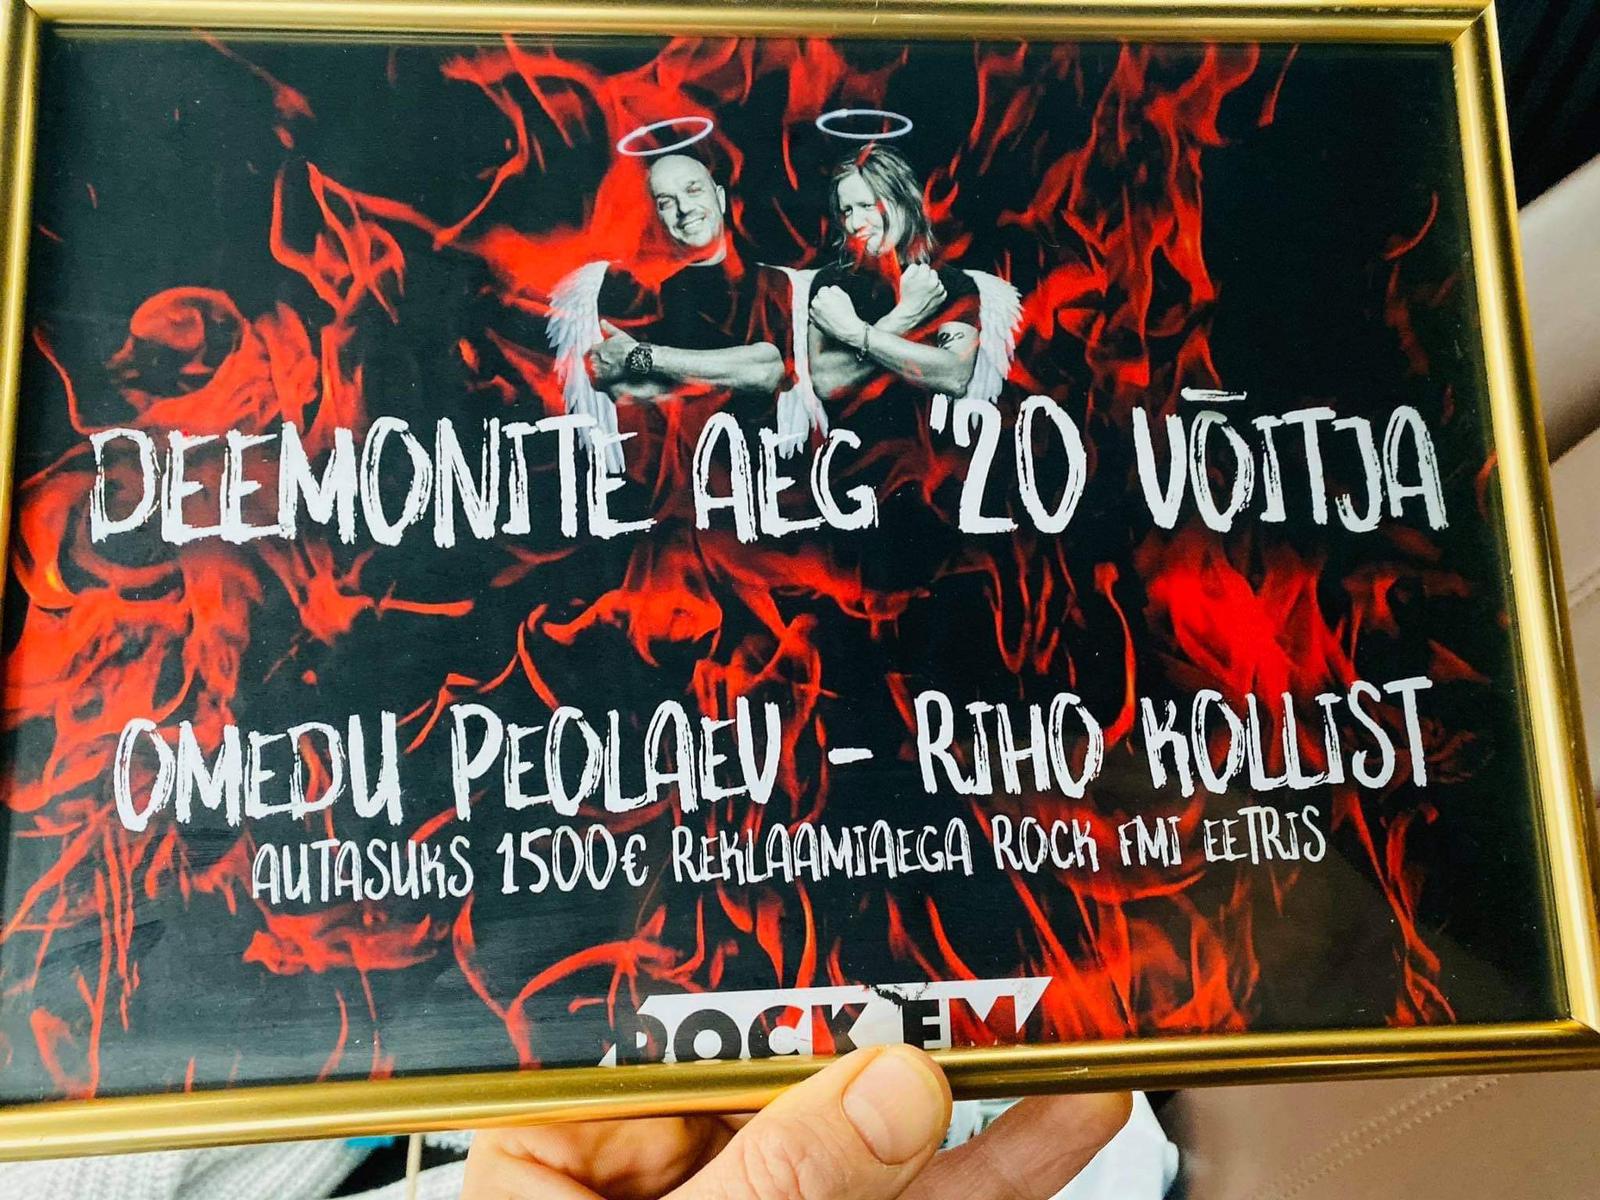 DEEMONITE AEG '20 VÕITJA
OMEDU PEOLAEV - RIHO KOLLIST
AUTASUKS 1500€ REKLAAMIAEGA ROCK FMI EETRIS
ROCK FM